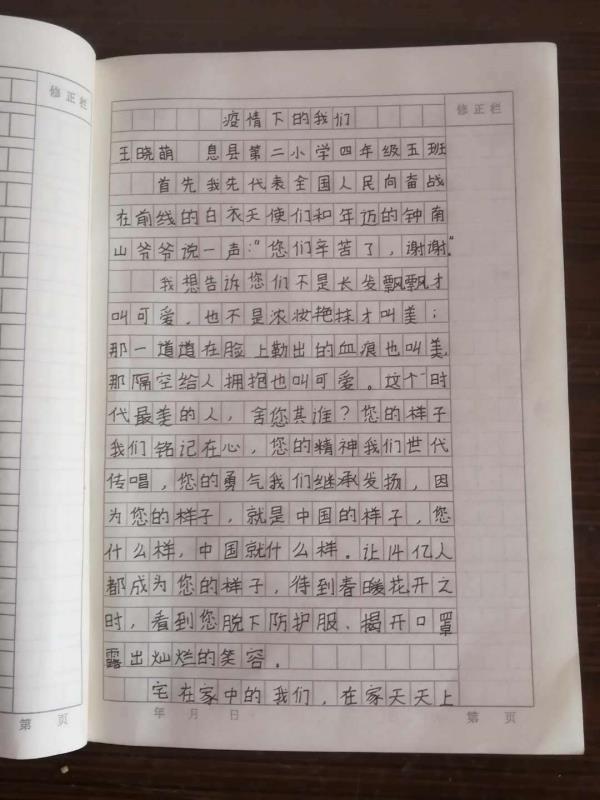 修正栏
修正栏
疫情下的我们
王晓萌 息县第二小学四年级五班
首先我先代表全国人民向奋战
在前线的白衣天使们和年迈的钟南
山爷爷说一声:“您们辛苦了,谢谢。”
我想告诉您们不是长发飘飘才
叫可爱,也不是浓妆艳抹才叫美;
那一道道在脸上勒出的血痕也叫美,
那隔空给人拥抱也叫可爱。这个时
代最美的人,舍您其谁?您的样子
我们铭记在心,您的精神我们世代
传唱,您的勇气我们继承发扬,因
为您的样子,就是中国的样子,您
什么样,中国就什么样。让14亿人
都成为您的样子,待到春暖花开之
时,看到您脱下防护服、揭开口罩
露出灿烂的笑容。
宅在家中的我们,在家天天上
年 月 日
第 页
第 页